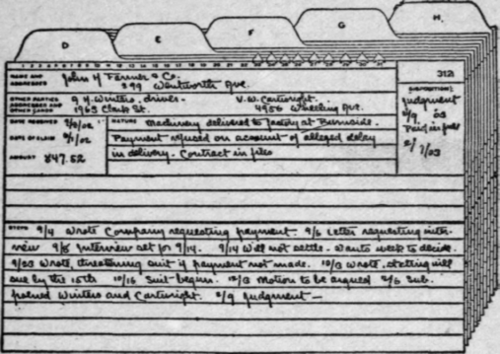 D E F G H.
NAME AND ADDRESSES John Y Farmer & Co. 399 Wentworth Ave.
3121
OTHER PARTIES 9 Y. Winters, driver- V. W. Cartwright.
1963 Clark St. 4956 Wheeling Ave.
DISPOSITION:
Judgment
2/9 03
Paid in full
2/ /03
DATE RECEIVED 9/3/02 NATURE Machinery delivered to factory at Burnside.
DATE OF CLAIM /1/02 Payment refused on account of alleged delay
in delivery. Contract in files
AMOUNT 847.52
STEPS 9/4 wrote Company requesting payment- 9/6 Letter requesting inter-
view 9/8 Interview set for 9/14. 9/14 Will not settle. Wants week to decide.
9/23 Wrote, threatening suit if payment not made. 10/3 Wrote, stating will
sue by the 15th 10/16 Suit begun. 12/3 Motion to be argued 2/6 Sub-
poenaed Winters and Cartwright. 2/9 Judgment-